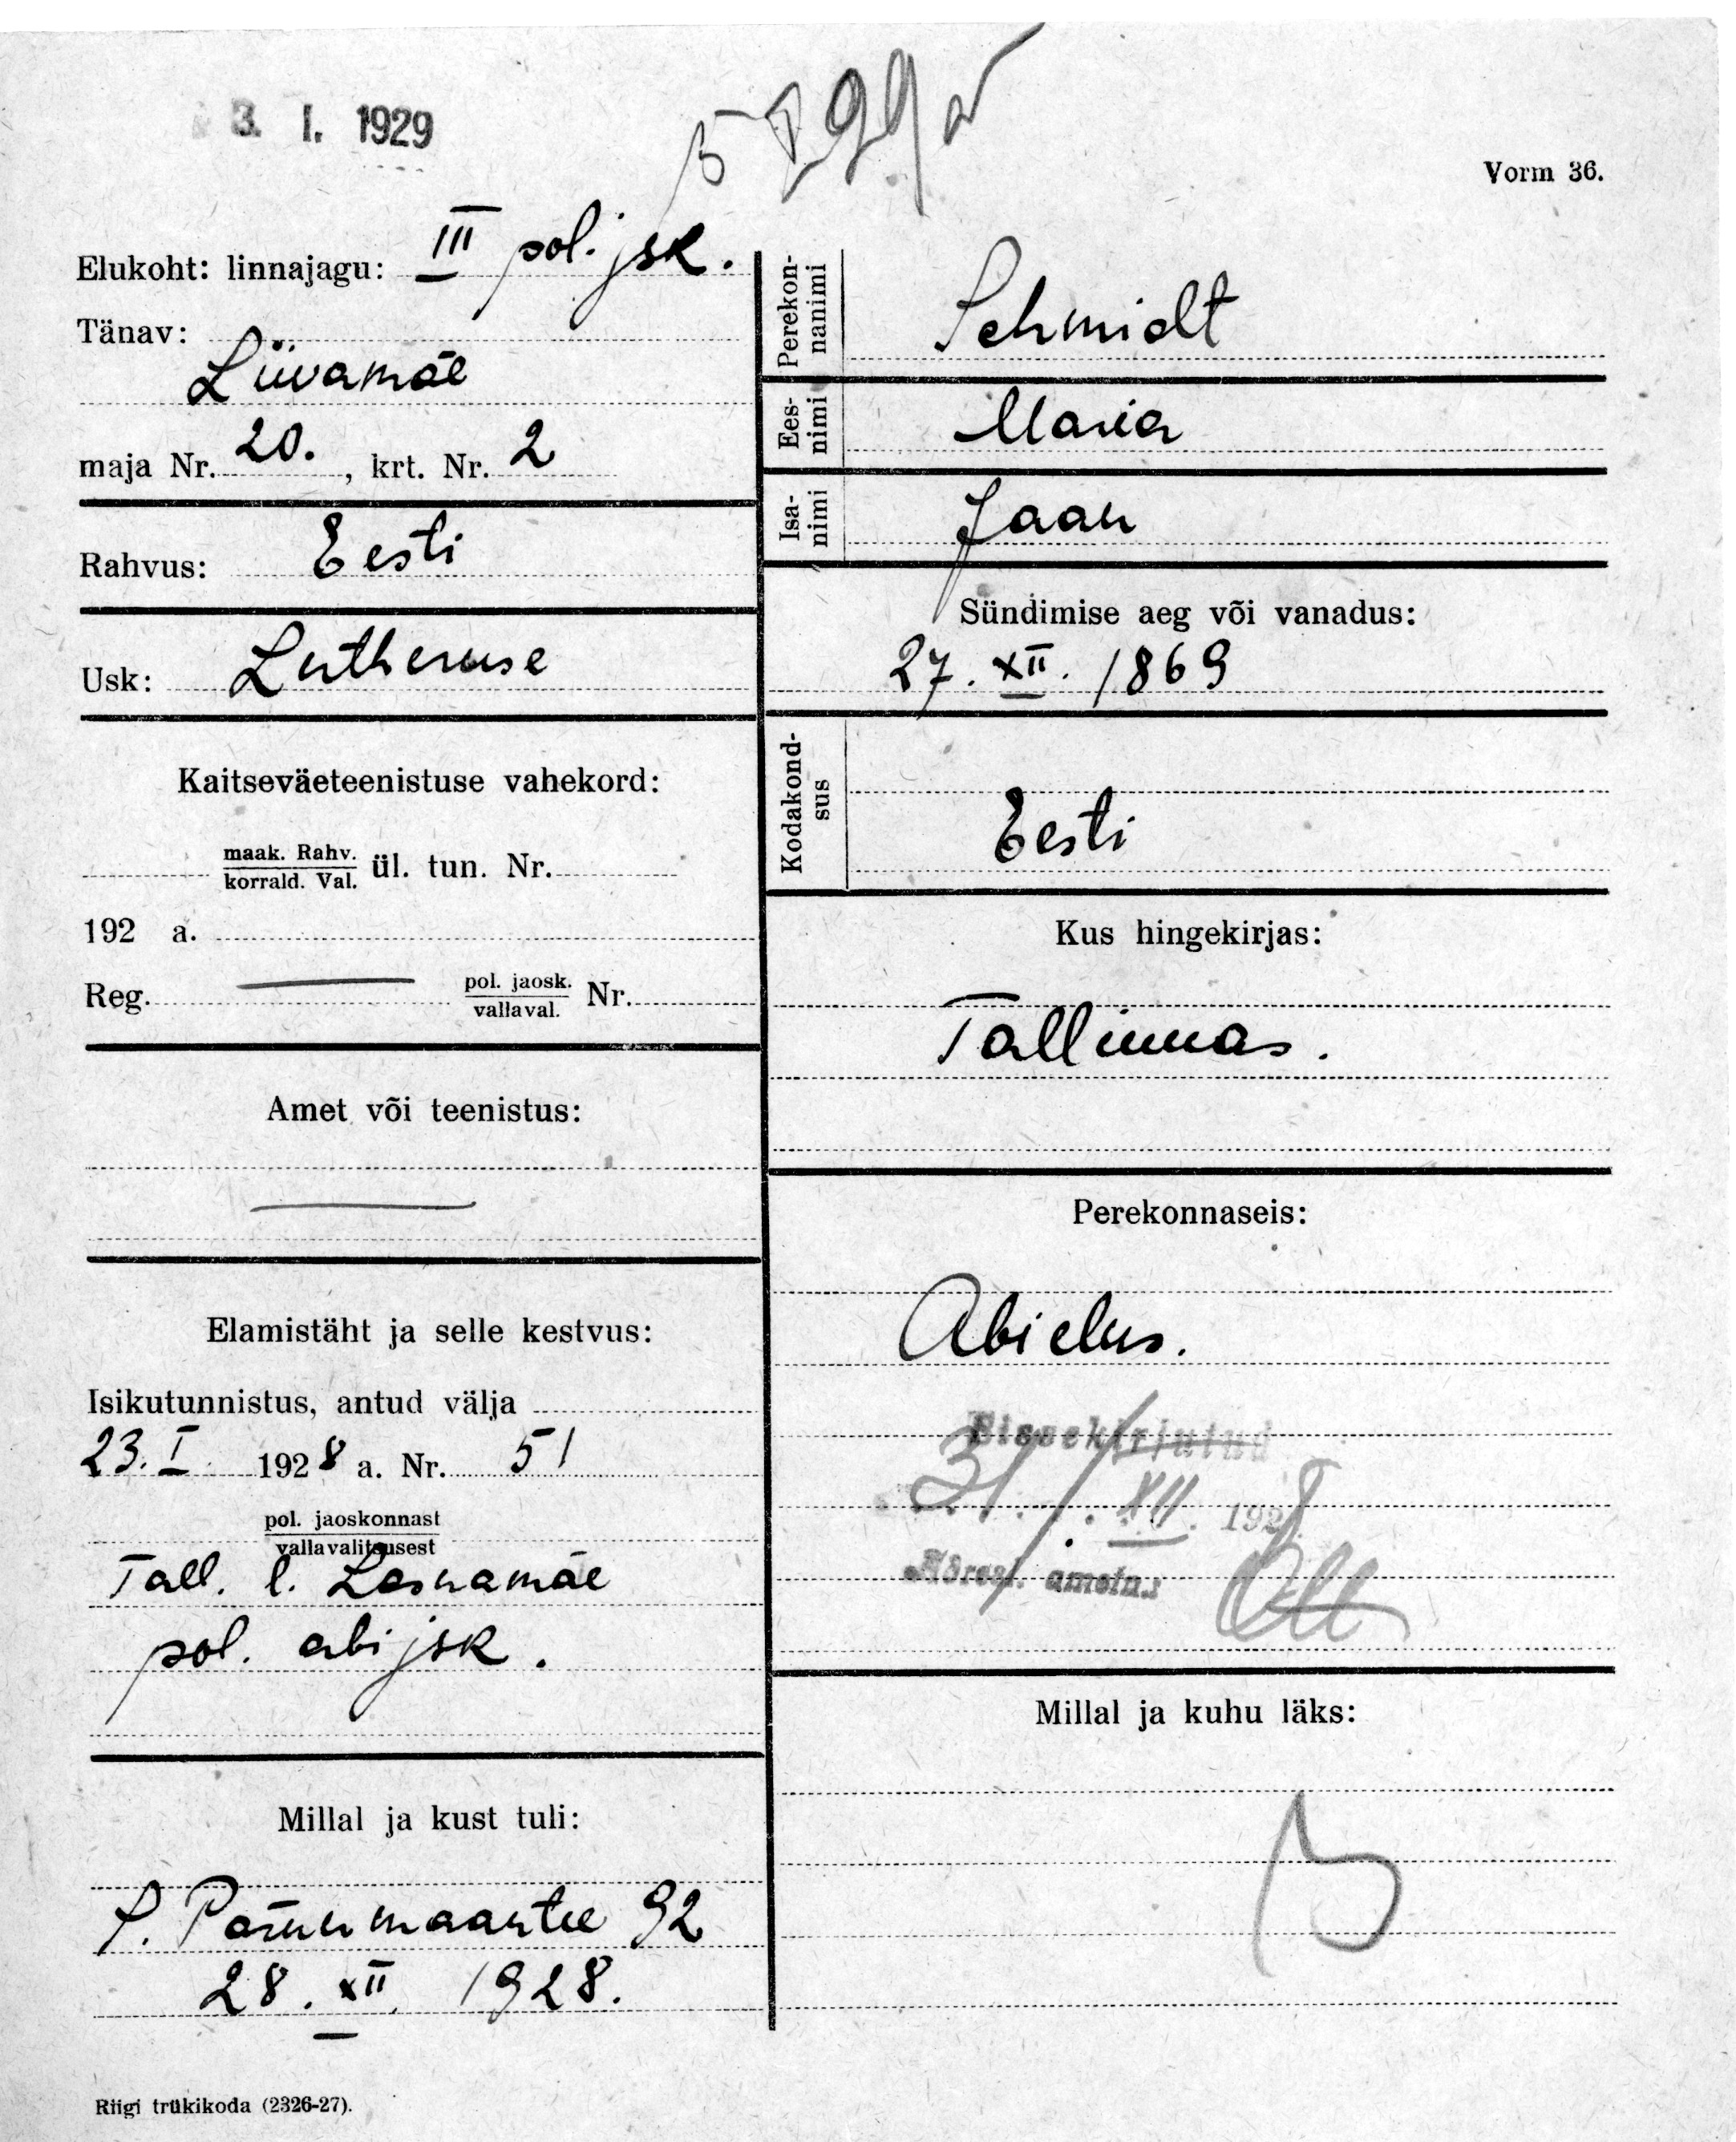 3. I. 1929
Vorm 36.
Elukoht: linnajagu: III pol. jsk.
Tänav:
Liivamäe
maja Nr. 20. , krt. Nr. 2
Rahvus: Eesti
Usk: Lutheruse
Kaitseväeteenistuse vahekord:
maak. Rahv.
korrald. Val. ül. tun. Nr.
192 a.
Reg. — pol. jaosk.
vallaval. Nr.
Amet või teenistus:
—
Elamistäht ja selle kestvus:
Isikutunnistus, antud välja
23. I 1928 a. Nr. 51
pol. jaoskonnast
vallavalitsusest
Tall. l. Lasnamäe
pol. abi jsk.
Millal ja kust tuli:
S. Pärnu maantee 92
28. XII. 1928.
Riigi trükikoda (2326-27).
Perekon-
nanimi Schmidt
Ees-
nimi Maria
Isa-
nimi Jaan
Sündimise aeg või vanadus:
27. XII. 1869
Kodakond-
sus
Eesti
Kus hingekirjas:
Tallinnas.
Perekonnaseis:
Abielus.
Sissekirjutud
31 / XII. 1928
Millal ja kuhu läks: